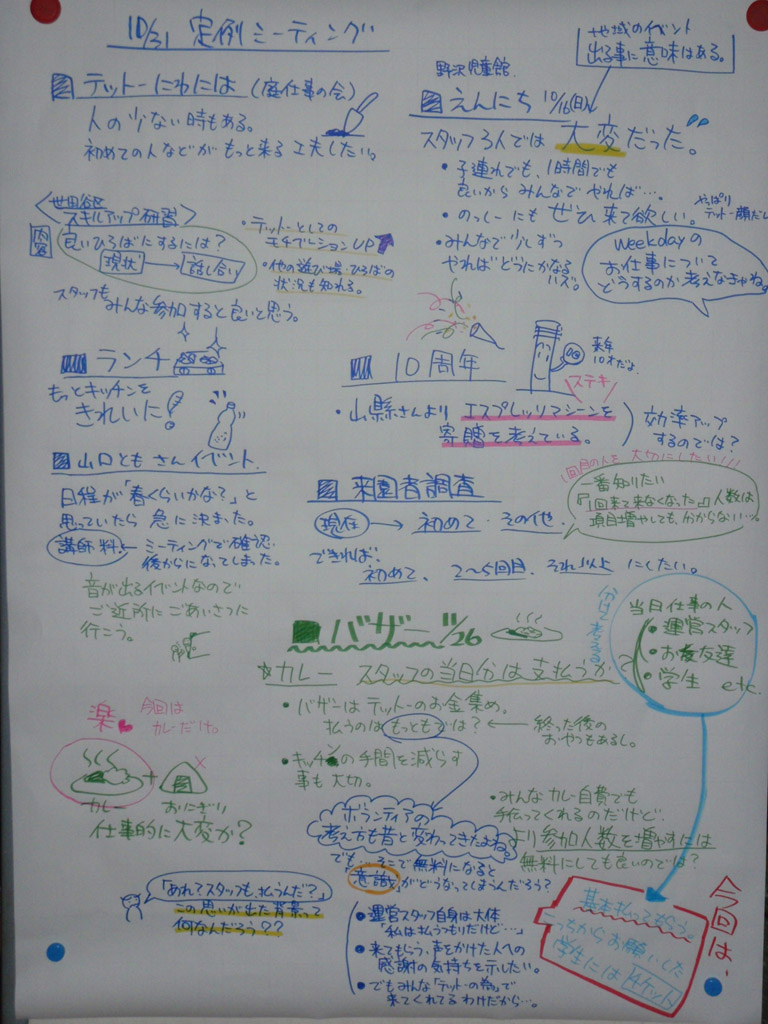 10/31 定例ミーティング
テットーにわには (庭仕事の会)
人の少ない時もある。
初めての人などがもっと来る工夫したい。
世田谷区
スキルアップ研習
内容
良いひろばにするには?
現状→話し合い
・テットーとしての
モチベーションUP
・他の遊び場・ひろばの
状況も知れる。
スタッフも
みんな参加すると良いと思う。
ランチ
もっとキッチンを
きれいに!
山口ともさんイベント
日程が「春くらいかな?」と
思っていたら急に決まった。
講師料 ← ミーティングで確認
後からになってしまった。
音が出るイベントなので
ご近所にごあいさつに
行こう。
地域のイベント
出る事に意味はある。
野沢児童館
えんにち 10/16(日)
スタッフ3人では大変だった。
・子連れでも、1時間でも
良いからみんなでやれば…。
・のっしーにもぜひ来て欲しい。
やっぱり
テットー顔だし
・みんなで少しずつ
やればどうにかなる
ハズ。
weekdayの
お仕事について
どうするのか考えなきゃね。
10周年
来年
10才だよ
ステキ
・山縣さんよりエスプレッソマシーンを
寄贈を考えている。
効率アップ
するのでは?
1回目の人を大切にしたい!!
来園者調査
一番知りたい
「1回来て来なくなった」人数は
項目増やしても分からない…。
現在→初めて・その他
できれば、
初めて、2〜5回目、それ以上にしたい。
バザー 11/26
☆カレー スタッフの当日分は支払うか?
分けて考える
当日仕事の人
・運営スタッフ
・お友達
・学生 etc.
・バザーはテットーのお金集め。
払うのはもっともでは?← 終った後の
おやつもあるし。
・キッチンの手間を減らす
事も大切。
楽
今回は
カレーだけ。
カレー + おにぎり
仕事的に大変か?
ボランティアの
考え方も昔と変わってきたよね。
・みんなカレー自費でも
手伝ってくれるのだけど、
より参加人数を増やすには
無料にしても良いのでは?
でも…そこで無料になると
意識がどうなってしまうんだろう?
「あれ?スタッフも、払うんだ?」
この思いが出た背景って
何なんだろう??
・運営スタッフ自身は大体
「私は払うつもりだけど…」
・来てもらう、声をかけた人への
感謝の気持ちを示したい。
・でもみんな「テットーの為」で
来てくれてるわけだから…。
今回は、
基本払ってもらう。
こっちからお願いした
学生にはチケット